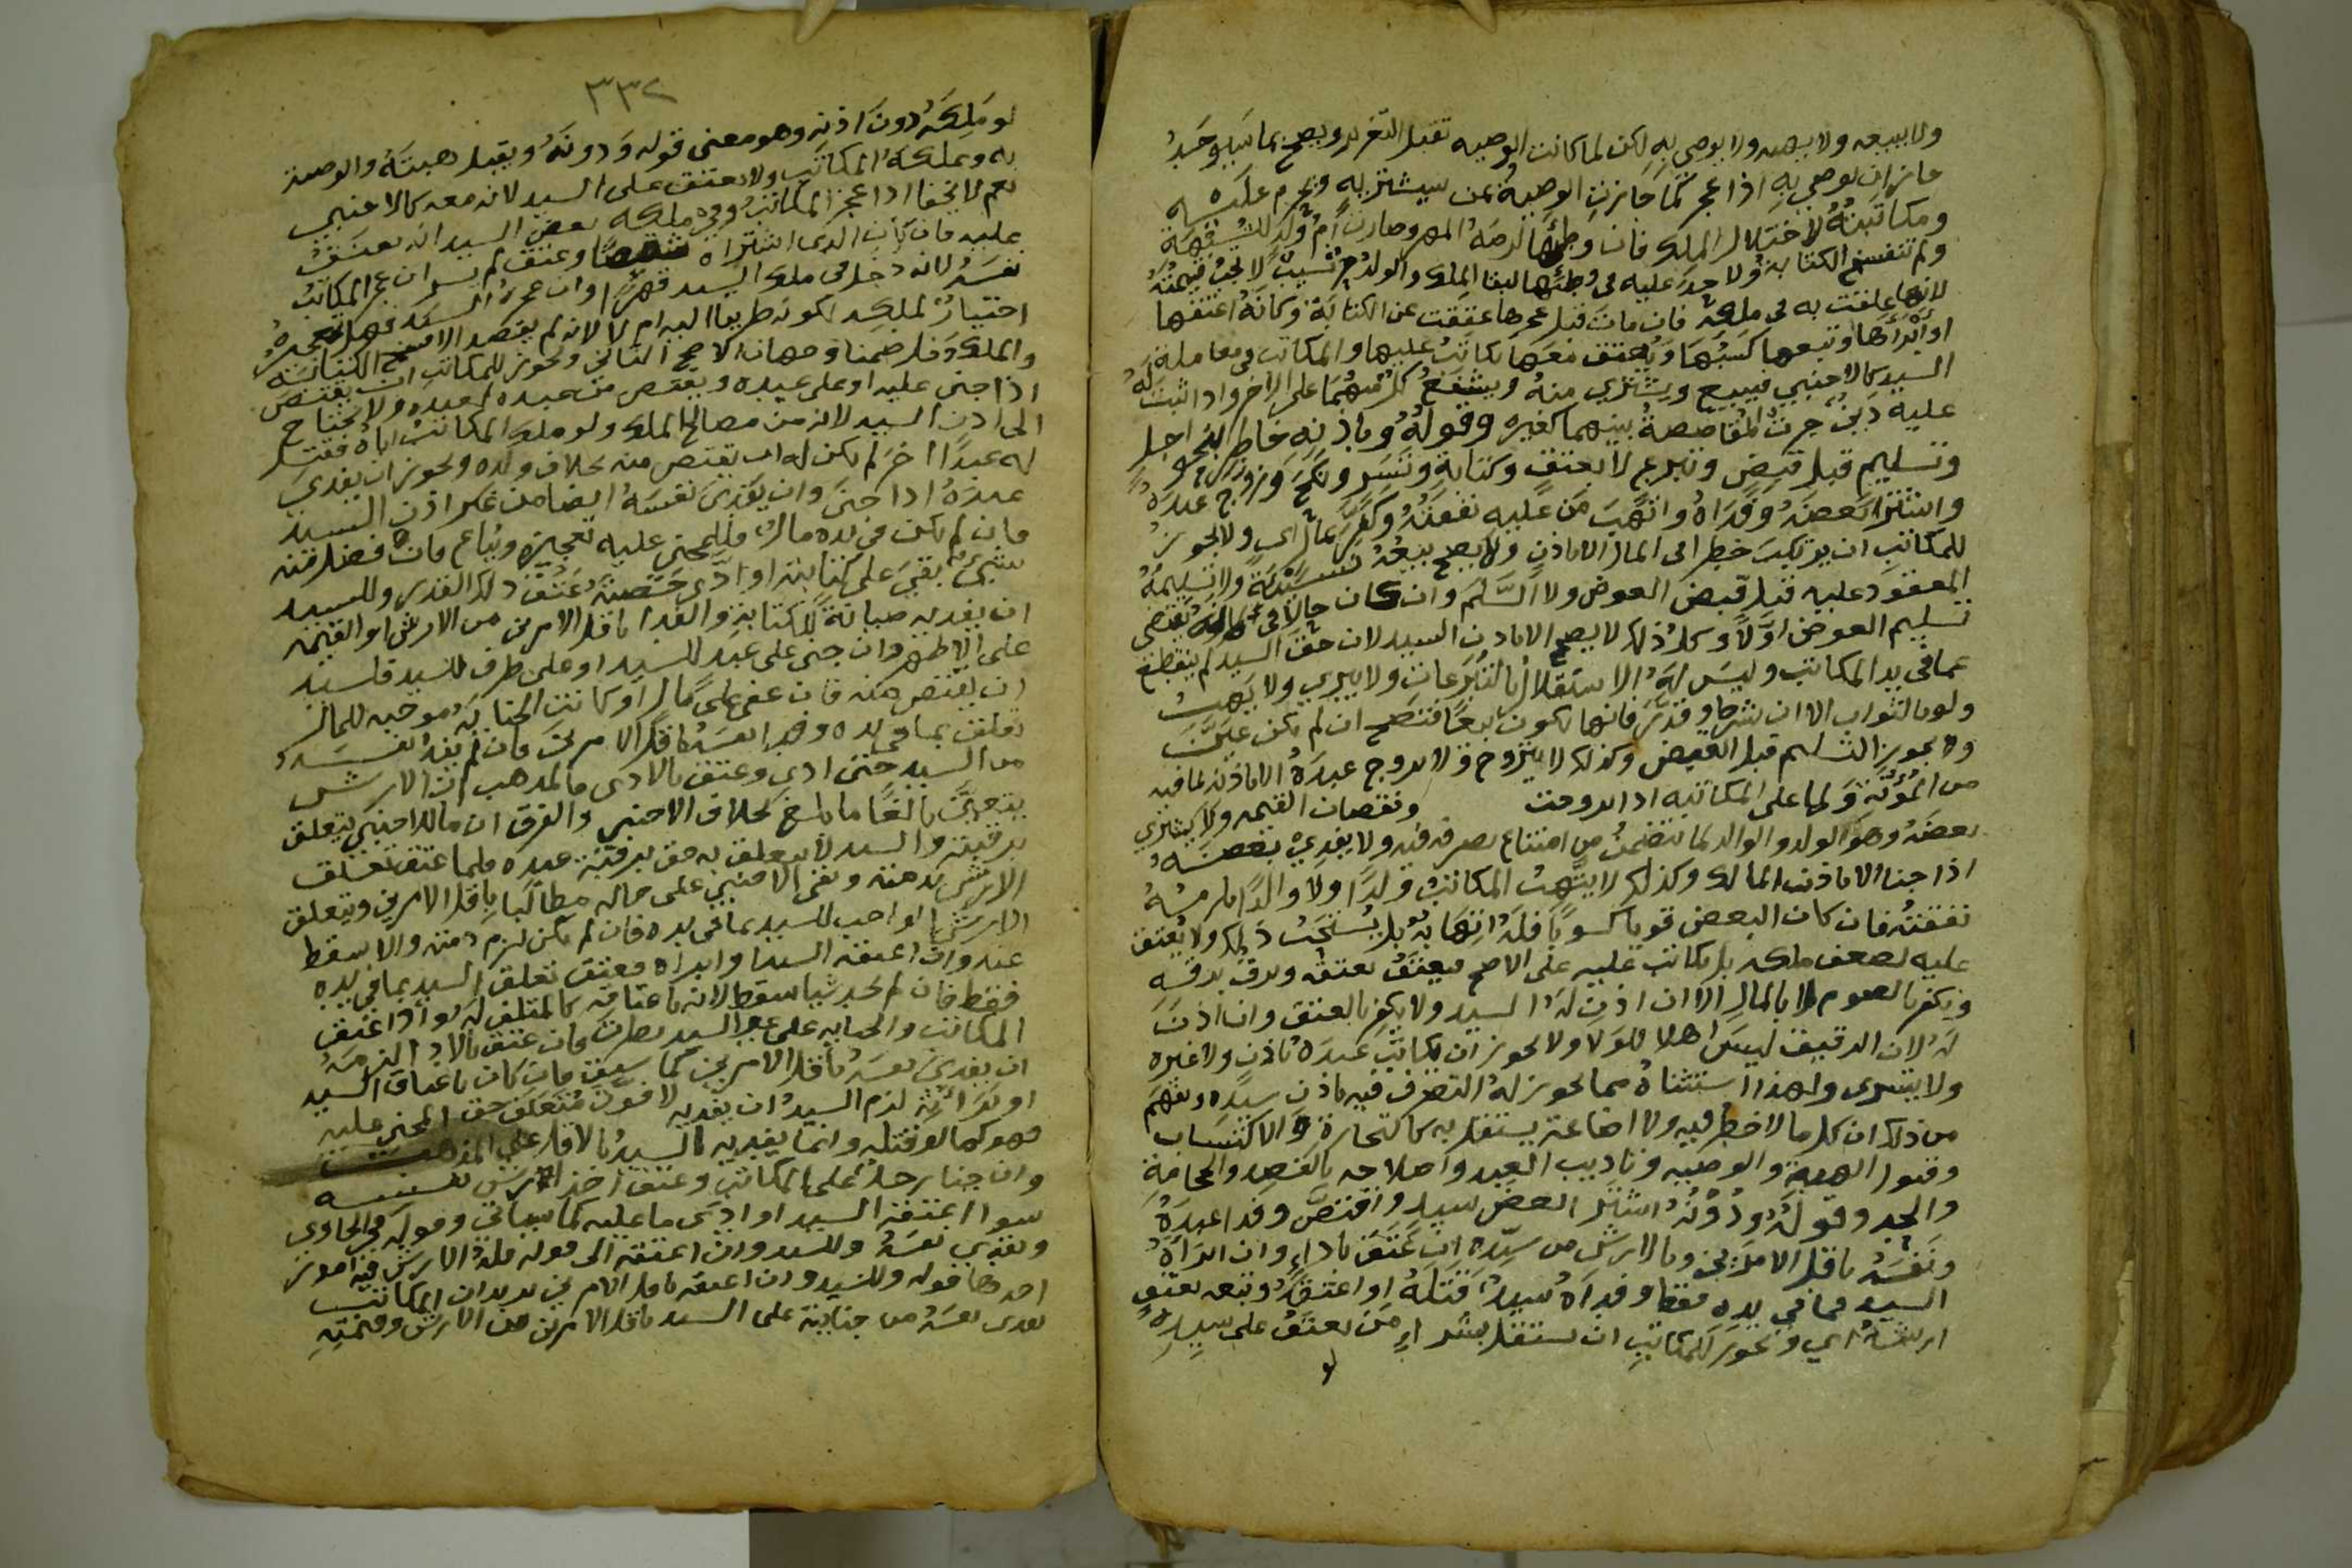 ولا يبيعه ولا يهبه ولا يوصي به لكن لما كانت الوصيه تقبل التغرير ويصح بما سيوجد
جاز ان يوصي به اذا عجز كما جازت الوصية بمن سيشتريه ويحرم عليه
ومكاتبته لاختلال الملك فان وطئها لزمه المهر وصارت ام ولد للشبهة
ولم تنفسخ الكتابة ولا حد عليه في وطئها لبقا الملك والولد نسيب لا تجب قيمته
لانها علقت به في ملكه فان مات قبل عجزها عتقت عن الكتابة وكانه اعتقها
او ابراها وتبعها كسبها ويعتق معها يكاتب عليها والمكاتب في معاملة
السيد كالاجنبي فيبيع ويشتري منه ويشفع كل منهما على الاخر واذا ثبت له
عليه دين جرت المقاصصة بينهما كغيره وقوله وباذنه خاطر اجل
وتسليم قبل قبض وتبرع لا بعتق وكتابة وتسر ونكح وزوج عبده
واشترا بعضه وفداه واتهب من عليه نفقته وكفر بمال اي ولا يجوز
للمكاتب ان يرتكب خطرا في المال الا باذن ولا يصح بيعه نسيئة ولا تسليمه
المعقود عليه قبل قبض العوض ولا السلم وان كان حالا
تسليم العوض اولا وكل ذلك لا يصح الا باذن السيد لان حق السيد لم ينقطع
عما في يد المكاتب وليس له الاستقلال بالتبرعات ولا يبري ولا يهب
ولو بالثواب الا ان يشرط وقدر فانها تكون بيعا فتصح ان لم يكن
ولا يجوز التسليم قبل القبض وكذلك لا يتزوج ولا يزوج عبده الا باذنه لما فيه
من المؤنة ولما على المكاتبه اذا زوجت ونقصان القيمه ولا يشتري
بعضه وهو الولد والوالد لما يتضمن من امتناع تصرفه فيه ولا يفدي بعضه
اذا جنا الا باذن المالك وكذلك لا يتهب المكاتب ولدا ولا والدا
نفقته فان كان البعض قويا كسوبا فله اتهابه بل يستحب ذلك ولا يعتق
عليه لضعف ملكه بل يكاتب عليه على الاصح فيعتق بعتقه ويرق برقه
ويكفر بالصوم لا بالمال الا ان اذن له السيد ولا يكفر بالعتق وان اذن
له لان الرقيق ليس اهلا للولا ولا يجوز ان يكاتب عبده باذن ولا غيره
ولا يتسرى ولهذا استثناه مما يجوز له التصرف فيه باذن سيده ويفهم
من ذلك ان كل ما لا خطر فيه ولا اضاعة يستقل به كالتجارة والاكتساب
وقبول الهبة والوصيه وتاديب العبيد واصلاحه بالفصد والحجامة
والحد وقوله ودونه اشترا بعض سيد واقتص وفدا عبده
ونفسه باقل الامرين وبالارش من سيده ان عتق باداء وان ابراه
السيد فما في يده فقط وفداه سيد قتله او اعتقه وتبعه بعتق
ارشه اي ويجوز للمكاتب ان يستقل بشراء من يعتق على سيده
لو
٣٣٢
لو ملكه دون اذنه وهو معنى قوله ودونه ويقبل هبته والوصيه
به ويملكه المكاتب ولا يعتق على السيد لانه معه كالاجنبي
نعم لا يخفا اذا عجز المكاتب وفي ملكه بعض السيد انه يعتق
عليه فان كان الذي اشتراه شقصا وعتق لم يسر ان عجز المكاتب
نفسه لانه دخل في ملك السيد قهرا وان عجزه السيد فهل تعجيزه
اختيار لملكه لكونه طريقا اليه ام لا لانه لم يقصد الا فسخ الكتابه
والملك دخل ضمنا وجهان الاصح الثاني ويجوز للمكاتب ان يقتص
اذا جنى عليه او على عبيده ويقتص من عبده لعبده ولا يحتاج
الى اذن السيد لانه من مصالح الملك ولو ملك المكاتب اباه فقتل
له عبدا اخر لم يكن له ان يقتص منه بخلاف ولده ويجوز ان يفدي
عبده اذا جنى وان يفدي نفسه ايضا من غير اذن السيد
فان لم يكن في يده مال فللمجني عليه تعجيزه ويباع فان فضل منه
شيء بقي على كتابته او ادى حصته عتق ذلك القدر وللسيد
ان يفديه صيانة للكتابة والفدا باقل الامرين من الارش او القيمه
على الاظهر وان جنى على عبد للسيد او على طرف للسيد فلسيد
ان يقتص منه فان عفي على مال او كانت الجنايه موجبه للمال
تعلق بما في يده وفدا نفسه باقل الامرين فان لم يفد نفسه
من السيد حتى ادى وعتق بالادى فالمذهب ان الارش
يتعين بالغا ما بلغ بخلاف الاجنبي والفرق ان مال الاجنبي يتعلق
برقبته والسيد لا يتعلق به حق برقبة عبده فلما عتق تعلق
الارش بذمته وبقي الاجنبي على حاله مطالبا باقل الامرين ويتعلق
الارش الواجب للسيد بما في يده فان لم يكن لزم ذمته والا سقط
عنه وان اعتقه السيد او ابراه فعتق تعلق السيد بما في يده
فقط فان لم يجد شيا سقط لانه باعتاقه كالمتلف له واذا اعتق
المكاتب والجنايه على غير السيد نظرت فان عتق بالادا لزمه
ان يفدي نفسه باقل الامرين كما سبق فان كان باعتاق السيد
او بابرائه لزم السيد ان يفديه لا فوت متعلق حق المجني عليه
فهو كما لو قتله وانما يفديه السيد بالاقل على المذهب
وان جنا رجل على المكاتب وعتق اخذ الارش لنفسه
سوا اعتقه السيد او ادى ما عليه كما سياتي وقوله في الحاوي
ويفدي نفسه وللسيد وان اعتقه الى قوله فله الارش فيه امور
احدها قوله وللسيد وان اعتقه باقل الامرين يريد ان المكاتب
يفدى نفسه من جنايته على السيد باقل الامرين من الارش وقيمته